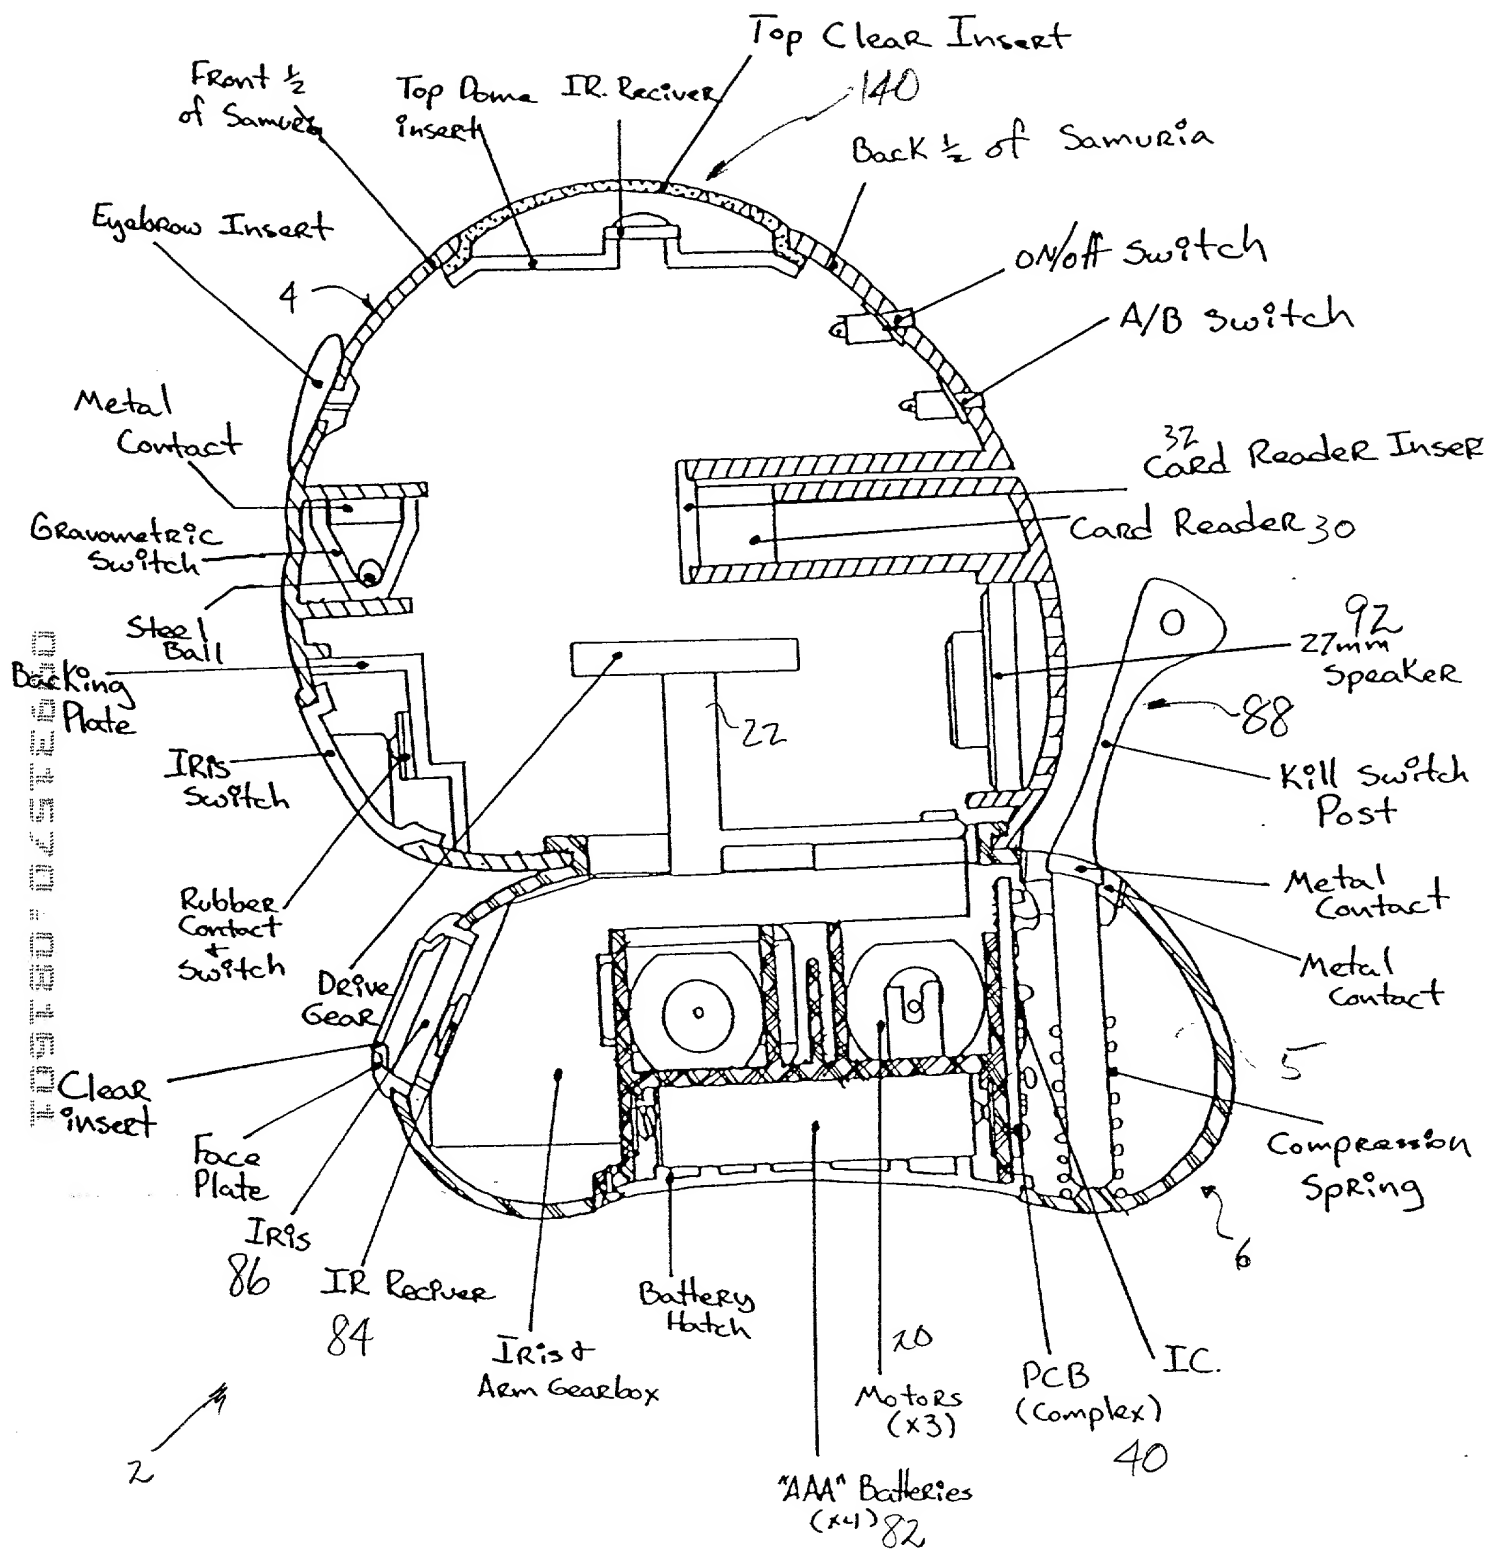 Top Clear Insert
140
Front ½
of Samuria
Top Dome
insert
IR. Reciver
Back ½ of Samuria
Eyebrow Insert
4
ON/off Switch
A/B Switch
Metal
Contact
32
Card Reader Inser
Gravometric
Switch
Card Reader 30
Steel
Ball
92
27mm
Speaker
Backing
Plate
22
88
IRis
Switch
Kill Switch
Post
Rubber
Contact
+
Switch
Metal
Contact
Drive
Gear
Metal
Contact
5
Clear
insert
Face
Plate
Compression
Spring
IRis
86
6
IR Reciver
84
Battery
Hatch
IRis &
Arm Gearbox
20
Motors
(x3)
PCB
(Complex)
40
I.C.
2
"AAA" Batteries
(x4) 82